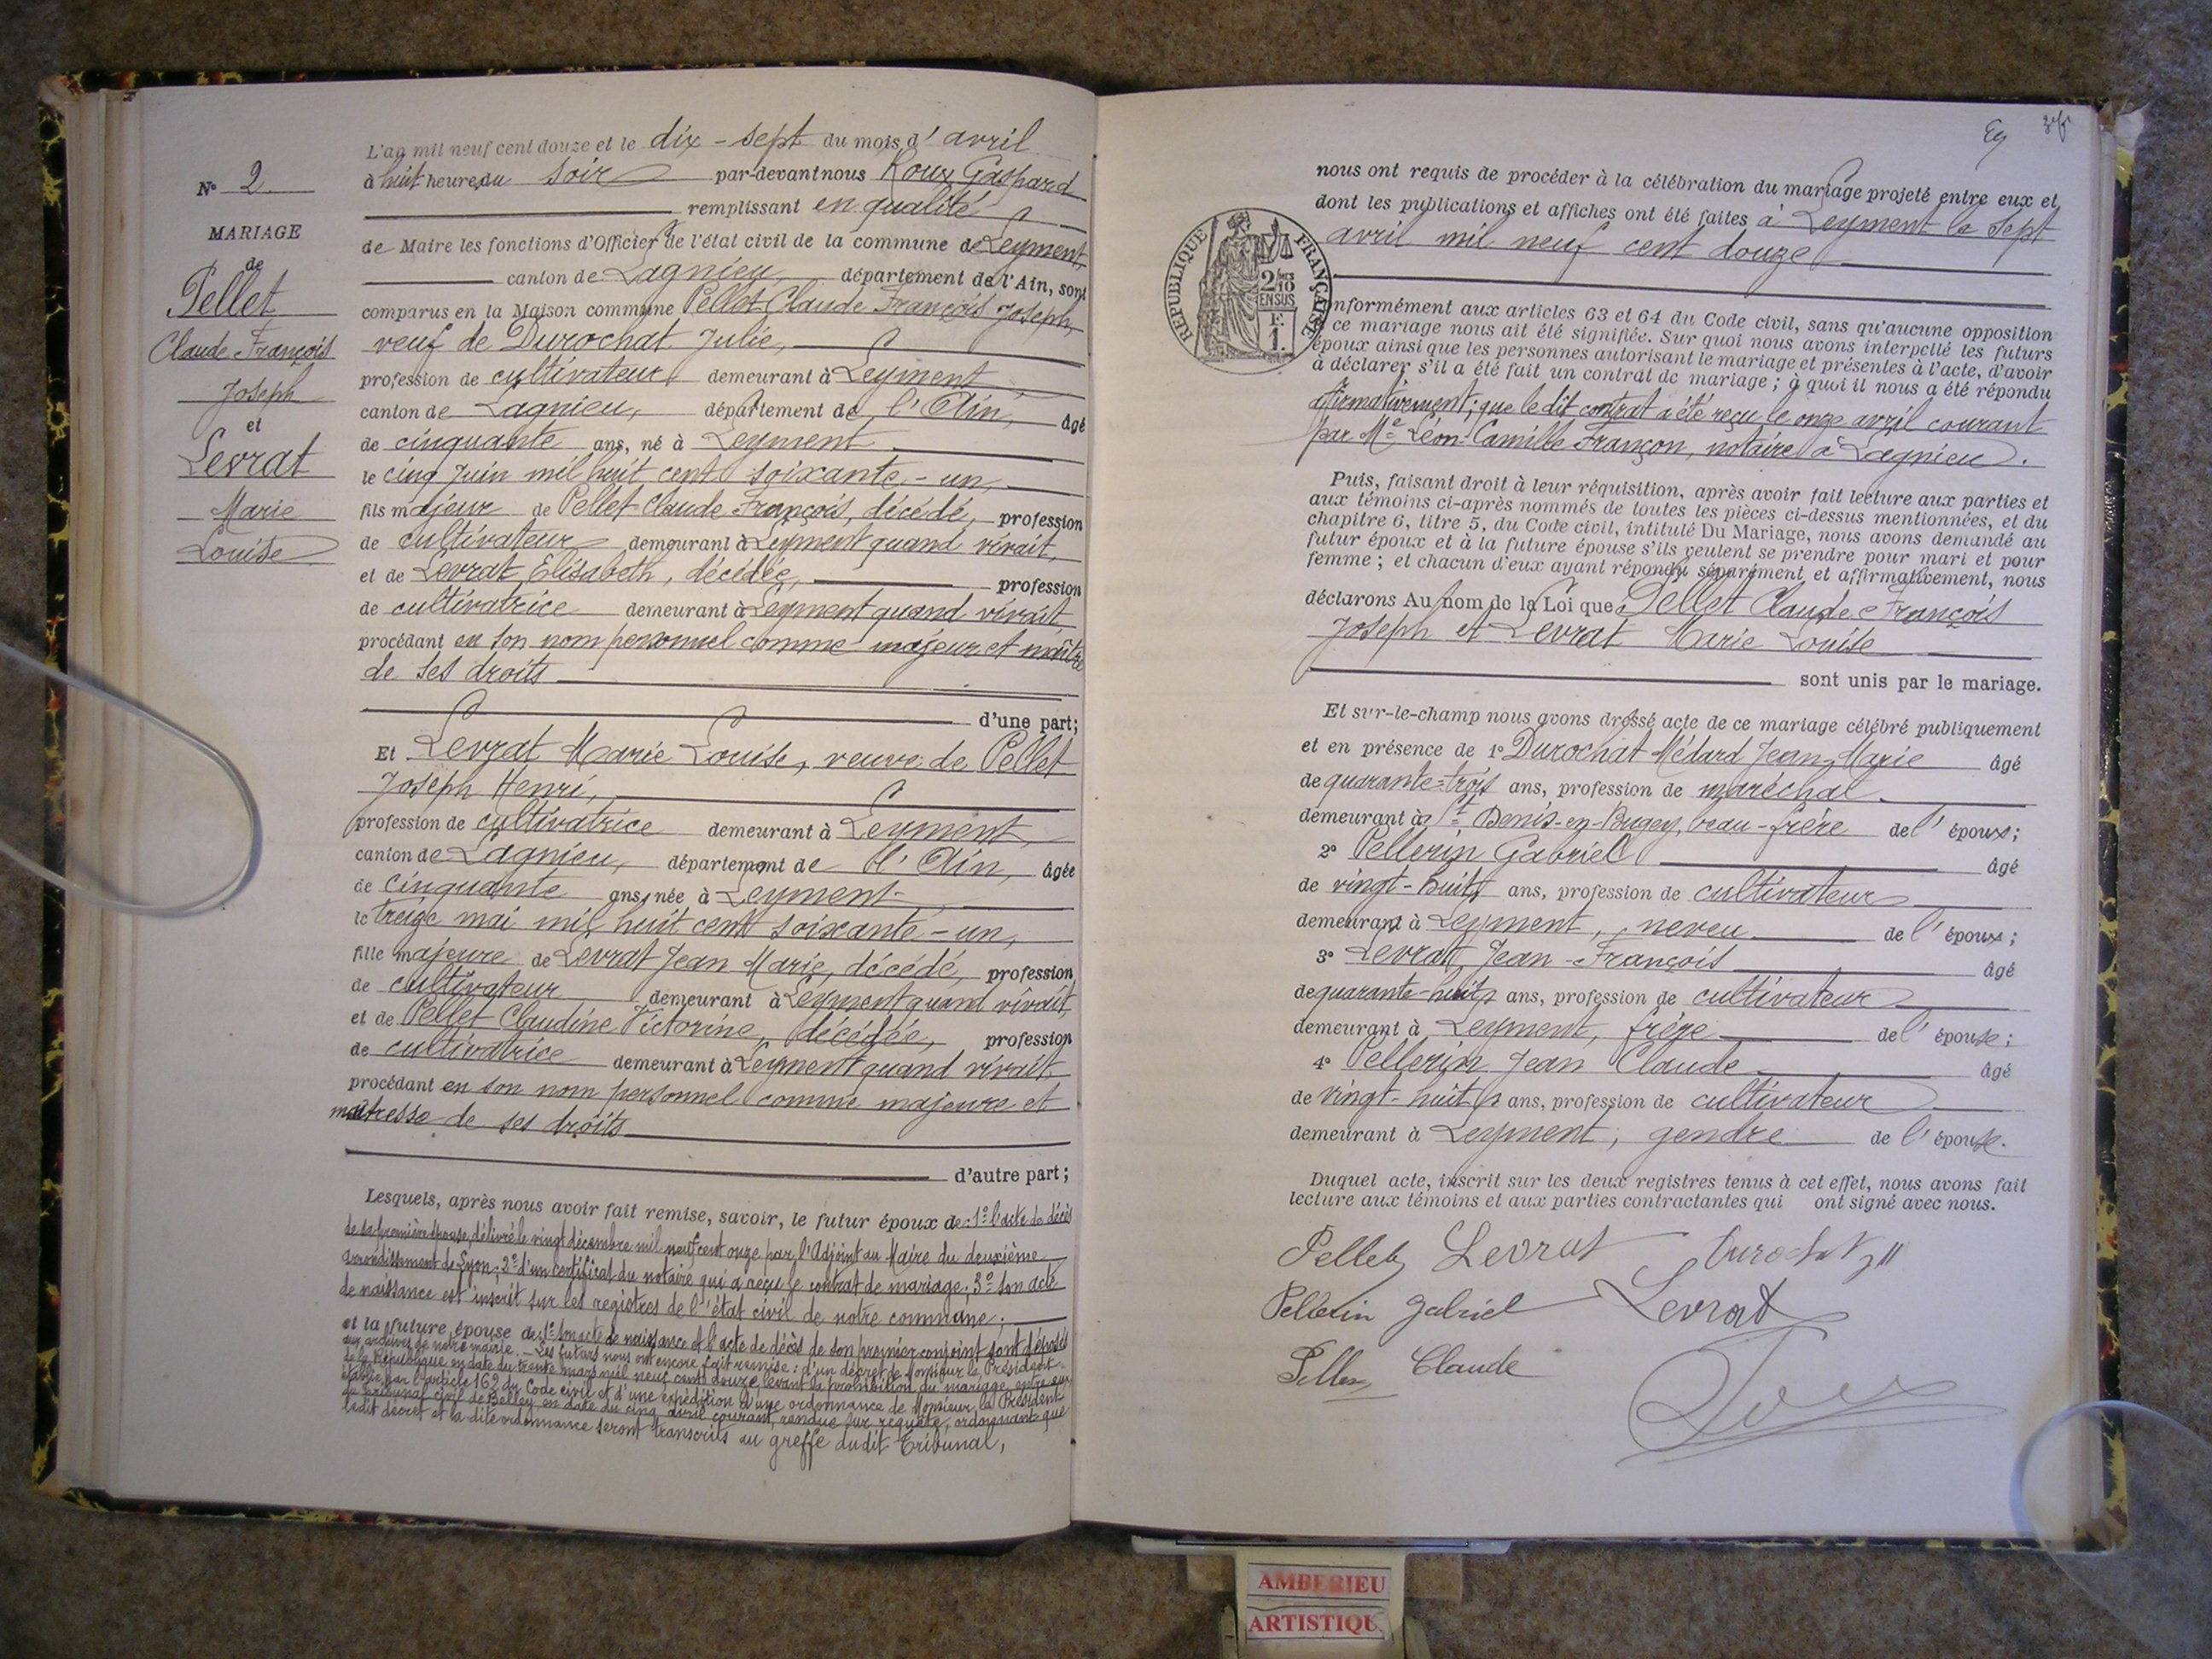 N° 2
MARIAGE
de
Pellet
Claude François
Joseph
et
Levrat
Marie
Louise
L'an mil neuf cent douze et le dix-sept du mois d'avril
à huit heures du soir par-devant nous Roux Gaspard
remplissant en qualité
de Maire les fonctions d'Officier de l'état civil de la commune de Leyment,
canton de Lagnieu, département de l'Ain, sont
comparus en la Maison commune Pellet Claude François Joseph,
veuf de Durochat Julie,
profession de cultivateur demeurant à Leyment,
canton de Lagnieu, département de l'Ain, âgé
de cinquante ans, né à Leyment
le cinq Juin mil huit cent soixante-un,
fils majeur de Pellet Claude François, décédé, profession
de cultivateur demeurant à Leyment quand vivait,
et de Levrat Elisabeth, décédée, profession
de cultivatrice demeurant à Leyment quand vivait
procédant en son nom personnel comme majeur et maître
de ses droits
d'une part;
Et Levrat Marie Louise, veuve de Pellet
Joseph Henri,
profession de cultivatrice demeurant à Leyment,
canton de Lagnieu, département de l'Ain, âgée
de cinquante ans, née à Leyment
le treize mai mil huit cent soixante-un,
fille majeure de Levrat Jean Marie, décédé, profession
de cultivateur demeurant à Leyment quand vivait,
et de Pellet Claudine Victorine, décédée, profession
de cultivatrice demeurant à Leyment quand vivait,
procédant en son nom personnel comme majeure et
maîtresse de ses droits
d'autre part;
Lesquels, après nous avoir fait remise, savoir, le futur époux de: 1° l'acte de décès
de sa première épouse, délivré le vingt décembre mil neuf cent onze par l'Adjoint au Maire du deuxième
arrondissement de Lyon; 2° d'un certificat du notaire qui a reçu le contrat de mariage; 3° son acte
de naissance est inscrit sur les registres de l'état civil de notre commune;
et la future épouse de: 1° son acte de naissance et l'acte de décès de son premier conjoint sont déposés
aux archives de notre mairie. - Les futurs nous ont encore fait remise: d'un décret de Monsieur le Président
de la République en date du trente mars mil neuf cent douze, levant la prohibition du mariage entre eux
établie par l'article 162 du Code civil et d'une expédition d'une ordonnance de Monsieur le Président
du tribunal civil de Belley en date du cinq avril courant, rendue sur requête, ordonnant que
ledit décret et la dite ordonnance seront transcrits au greffe dudit Tribunal,
nous ont requis de procéder à la célébration du mariage projeté entre eux et
dont les publications et affiches ont été faites à Leyment le sept
avril mil neuf cent douze
REPUBLIQUE FRANÇAISE
2/10 EN SUS
F. 1.
nformément aux articles 63 et 64 du Code civil, sans qu'aucune opposition
à ce mariage nous ait été signifiée. Sur quoi nous avons interpellé les futurs
époux ainsi que les personnes autorisant le mariage et présentes à l'acte, d'avoir
à déclarer s'il a été fait un contrat de mariage; à quoi il nous a été répondu
affirmativement; que le dit contrat a été reçu le onze avril courant
par Me Léon-Camille Françon, notaire à Lagnieu.
Puis, faisant droit à leur réquisition, après avoir fait lecture aux parties et
aux témoins ci-après nommés de toutes les pièces ci-dessus mentionnées, et du
chapitre 6, titre 5, du Code civil, intitulé Du Mariage, nous avons demandé au
futur époux et à la future épouse s'ils veulent se prendre pour mari et pour
femme; et chacun d'eux ayant répondu séparément et affirmativement, nous
déclarons Au nom de la Loi que Pellet Claude François
Joseph et Levrat Marie Louise
sont unis par le mariage.
Et sur-le-champ nous avons dressé acte de ce mariage célébré publiquement
et en présence de 1° Durochat Médard Jean Marie âgé
de quarante-trois ans, profession de maréchal
demeurant à St Denis-en-Bugey, beau-frère de l'époux;
2° Pellerin Gabriel âgé
de vingt-huit ans, profession de cultivateur
demeurant à Leyment, neveu de l'époux;
3° Levrat Jean-François âgé
de quarante-huit ans, profession de cultivateur
demeurant à Leyment, frère de l'épouse;
4° Pellerin Jean Claude âgé
de vingt-huit ans, profession de cultivateur
demeurant à Leyment, gendre de l'épouse.
Duquel acte, inscrit sur les deux registres tenus à cet effet, nous avons fait
lecture aux témoins et aux parties contractantes qui ont signé avec nous.
Pellet Levrat Durochat
Pellerin Gabriel Levrat
Claude
Roux
AMBERIEU
ARTISTIQU